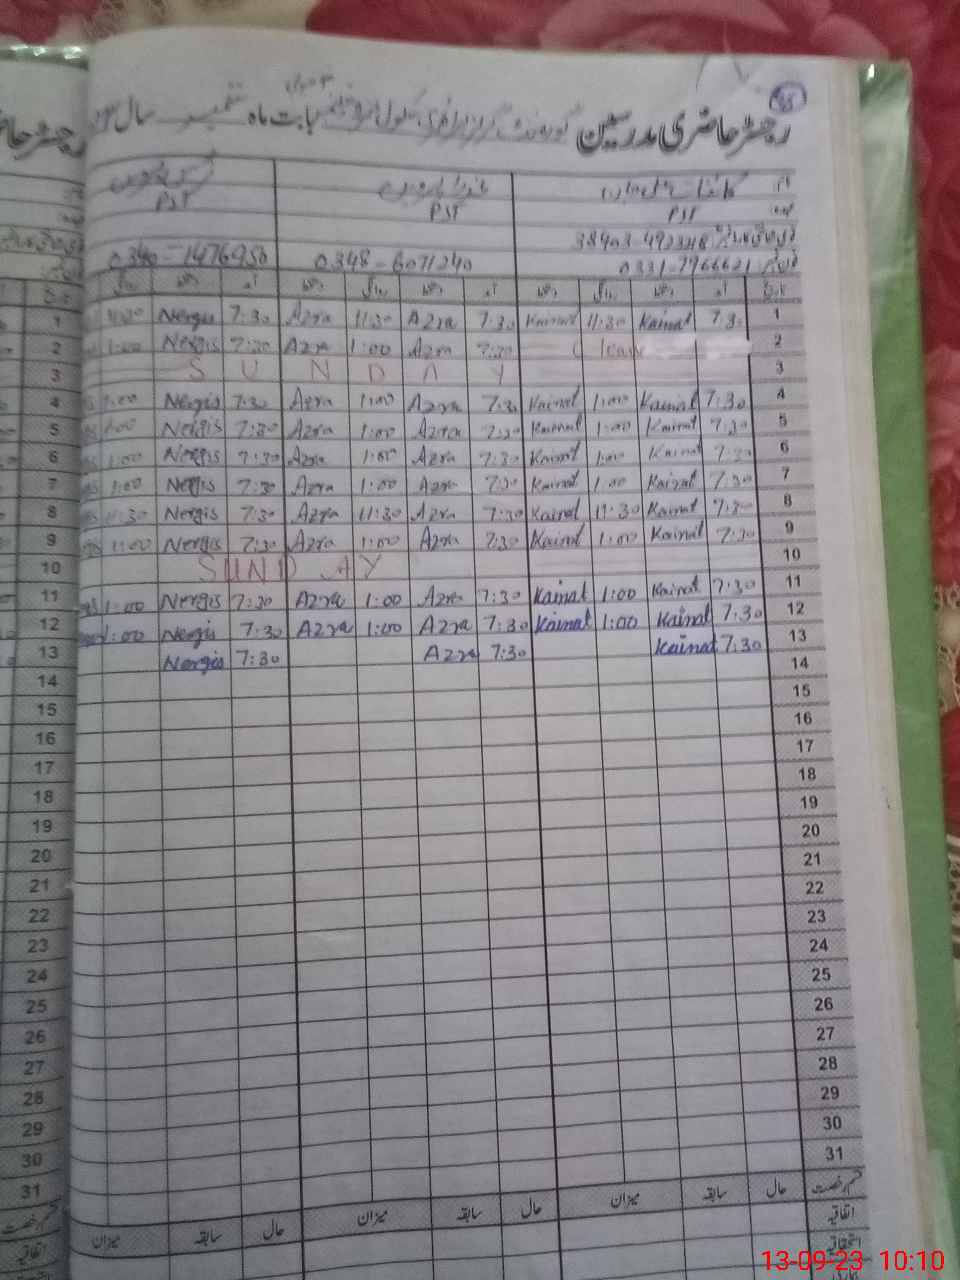 رجسٹر حاضری مدرسین گورنمنٹ گرلز پرائمری سکول بابت ماہ ستمبر سال
نام
PST PST PST
38403-492348
0331-7966621 0348-6071240 0340-1476950
تاریخ آمد دستخط روانگی دستخط آمد دستخط روانگی دستخط آمد دستخط روانگی
1 7:30 Kainat 11:30 Kainat 7:30 Azra 11:30 Azra 7:30 Nergis 11:30
2 leave 7:30 Azra 1:00 Azra 7:30 Nergis 1:00
3 S U N D A Y
4 7:30 Kainat 1:00 Kainat 7:30 Azra 1:00 Azra 7:30 Nergis 1:00
5 7:30 Kainat 1:00 Kainat 7:30 Azra 1:00 Azra 7:30 Nergis 1:00
6 7:30 Kainat 1:00 Kainat 7:30 Azra 1:00 Azra 7:30 Nergis 1:00
7 7:30 Kainat 1:00 Kainat 7:30 Azra 1:00 Azra 7:30 Nergis 1:00
8 7:30 Kainat 11:30 Kainat 7:30 Azra 11:30 Azra 7:30 Nergis 11:30
9 7:30 Kainat 1:00 Kainat 7:30 Azra 1:00 Azra 7:30 Nergis 1:00
10 SUNDAY
11 7:30 Kainat 1:00 Kainat 7:30 Azra 1:00 Azra 7:30 Nergis 1:00
12 7:30 Kainat 1:00 Kainat 7:30 Azra 1:00 Azra 7:30 Nergis 1:00
13 7:30 Kainat 7:30 Azra 7:30 Nergis
14
15
16
17
18
19
20
21
22
23
24
25
26
27
28
29
30
31
قسم رخصت حال سابقہ میزان حال سابقہ میزان حال سابقہ میزان
اتفاقیہ
استحقاقیہ
13-09-23 10:10